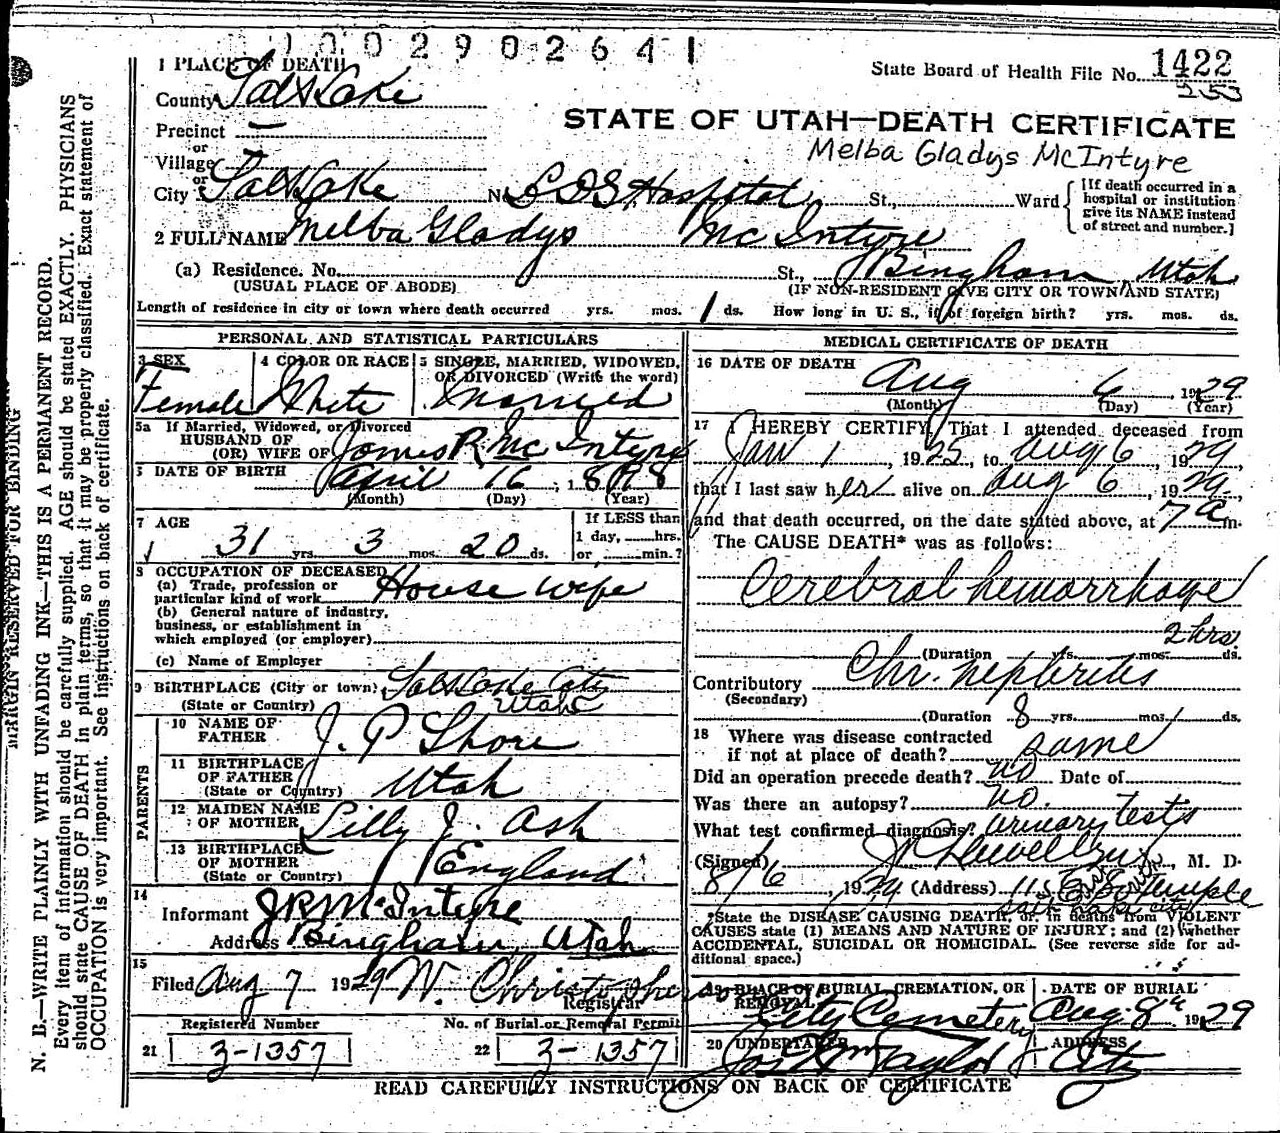 1002902641
1 PLACE OF DEATH
State Board of Health File No. 1422
253
County Salt Lake
STATE OF UTAH—DEATH CERTIFICATE
Precinct —
Melba Gladys McIntyre
or
Village
or
City Salt Lake No L D S Hospital St., Ward
[If death occurred in a
hospital or institution
give its NAME instead
of street and number.]
2 FULL NAME Melba Gladys Mc Intyre
(a) Residence. No. St., Bingham, Utah
(USUAL PLACE OF ABODE) (IF NON-RESIDENT GIVE CITY OR TOWN AND STATE)
Length of residence in city or town where death occurred yrs. mos. 1 ds. How long in U. S., if of foreign birth? yrs. mos. ds.
PERSONAL AND STATISTICAL PARTICULARS
3 SEX
Female
4 COLOR OR RACE
White
5 SINGLE, MARRIED, WIDOWED,
OR DIVORCED (Write the word)
Married
5a If Married, Widowed, or Divorced
HUSBAND OF
(OR) WIFE OF James R Mc Intyre
DATE OF BIRTH April 16, 1898
(Month) (Day) (Year)
7 AGE
31 yrs. 3 mos. 20 ds.
If LESS than
1 day, hrs.
or min.?
8 OCCUPATION OF DECEASED
(a) Trade, profession or
particular kind of work House Wife
(b) General nature of industry,
business, or establishment in
which employed (or employer)
(c) Name of Employer
9 BIRTHPLACE (City or town) Salt Lake City
(State or Country) Utah
PARENTS
10 NAME OF
FATHER J. P Shore
11 BIRTHPLACE
OF FATHER
(State or Country) Utah
12 MAIDEN NAME
OF MOTHER Lilly J. Ash
13 BIRTHPLACE
OF MOTHER
(State or Country) England
14
Informant J R McIntyre
Address Bingham, Utah
15
Filed Aug 7 1929 W. Christopherson
Registrar
Registered Number
21 3-1357
No. of Burial or Removal Permit
22 3-1357
MEDICAL CERTIFICATE OF DEATH
16 DATE OF DEATH
Aug 6, 1929
(Month) (Day) (Year)
17 I HEREBY CERTIFY, That I attended deceased from
Jan 1, 1925, to Aug 6, 1929,
that I last saw her alive on Aug 6, 1929,
and that death occurred, on the date stated above, at 7 a m.
The CAUSE DEATH* was as follows:
Cerebral hemorrhage
2 hrs.
(Duration yrs. mos. ds.
Contributory Chr. nephritis
(Secondary)
(Duration 8 yrs. mos. ds.
18 Where was disease contracted
if not at place of death? same
Did an operation precede death? no Date of
Was there an autopsy? no.
What test confirmed diagnosis? urinary tests
(Signed) , M. D.
8/6, 1929 (Address) 11 S. E. Temple
Salt Lake City
*State the DISEASE CAUSING DEATH, or, in deaths from VIOLENT
CAUSES state (1) MEANS AND NATURE OF INJURY; and (2) whether
ACCIDENTAL, SUICIDAL OR HOMICIDAL. (See reverse side for ad-
ditional space.)
19 PLACE OF BURIAL, CREMATION, OR
REMOVAL
City Cemetery
DATE OF BURIAL
Aug. 8th 1929
20 UNDERTAKER
Jos Wm Taylor
ADDRESS
City
READ CAREFULLY INSTRUCTIONS ON BACK OF CERTIFICATE
MARGIN RESERVED FOR BINDING
N. B.—WRITE PLAINLY WITH UNFADING INK—THIS IS A PERMANENT RECORD.
Every item of information should be carefully supplied. AGE should be stated EXACTLY. PHYSICIANS
should state CAUSE OF DEATH in plain terms, so that it may be properly classified. Exact statement of
OCCUPATION is very important. See Instructions on back of certificate.